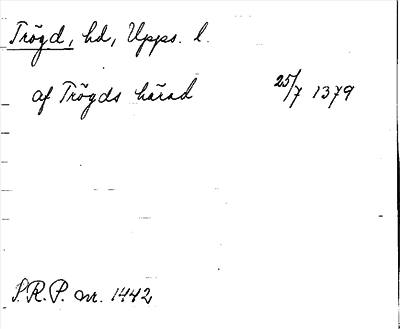 Trögd, hd, Upps. l.
af Trögds härad 25/7 1379
S.R.P. nr. 1442